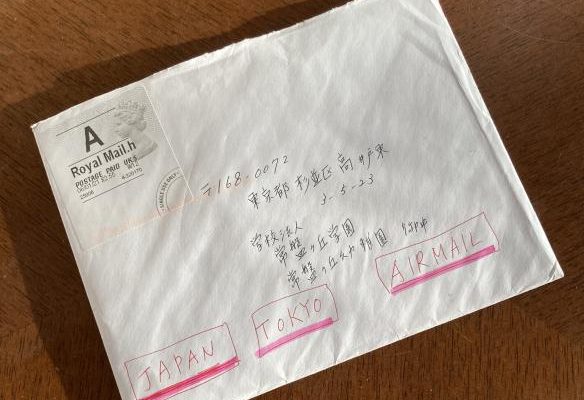 A
Royal Mail.h
POSTAGE PAID UK£
〒168-0072
東京都 杉並区 高井戸東
3-5-23
学校法人
常盤ヶ丘学園
常盤ヶ丘幼稚園
AIRMAIL
TOKYO
JAPAN